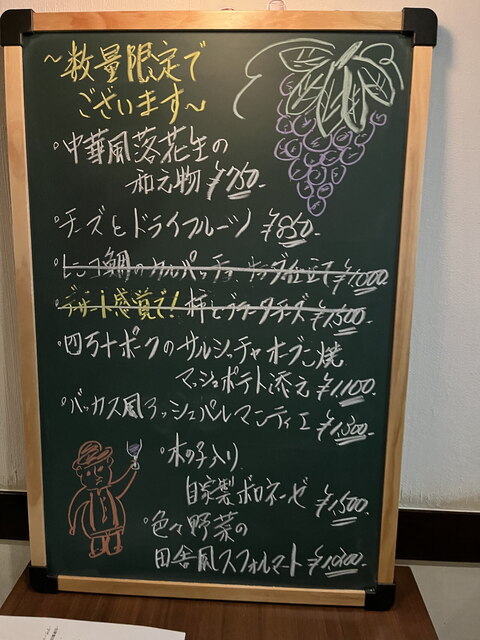 ~数量限定で
ございます~
°中華風落花生の
和え物 ¥750-
°チーズとドライフルーツ ¥850-
°レンコ鯛のカルパッチョ ¥1,000
°デザート感覚で! 柿とブラータチーズ ¥1,500-
°四万十ポークのサルシッチャオーブン焼
マッシュポテト添え ¥1,100-
°バッカス風アッシュパルマンティエ ¥1,300-
°木の子入り
自家製ボロネーゼ ¥1,500
°色々野菜の
田舎風スフォルマート